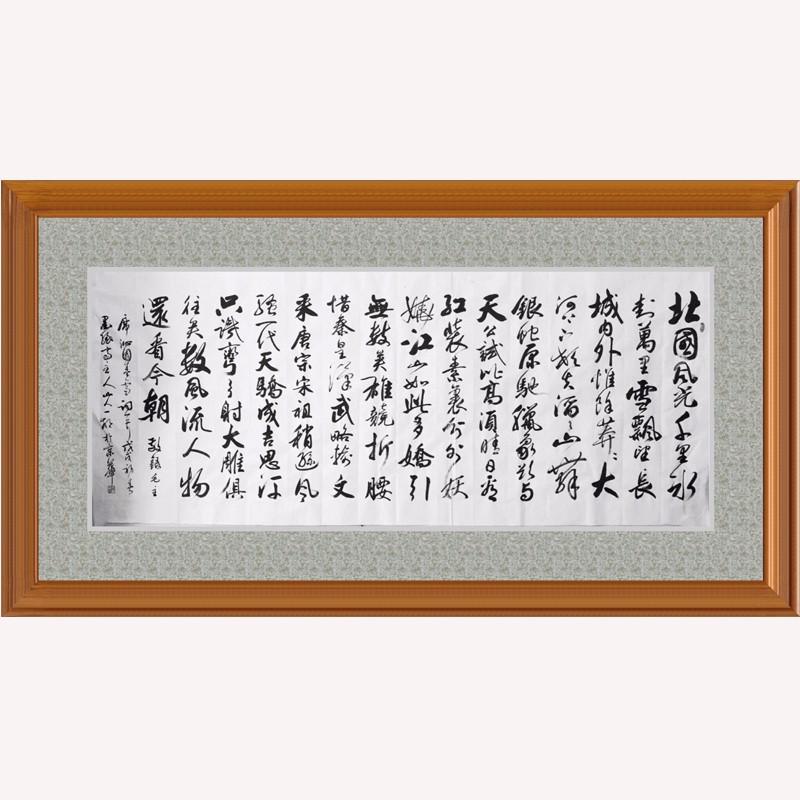 北國風光千里冰
封萬里雪飄望長
城內外惟餘莽々大
河上下頓失滔々山舞
銀蛇原馳臘象欲与
天公試比高須晴日看
紅裝素裹分外妖
嬈江山如此多嬌引
無數英雄競折腰
惜秦皇漢武略輸文
采唐宗宋祖稍遜風
騷一代天驕成吉思汗
只識彎弓射大雕俱
往矣數風流人物
還看今朝 敬錄毛主
席沁園春雪詞一首戊戌初春
主人山人一於京華